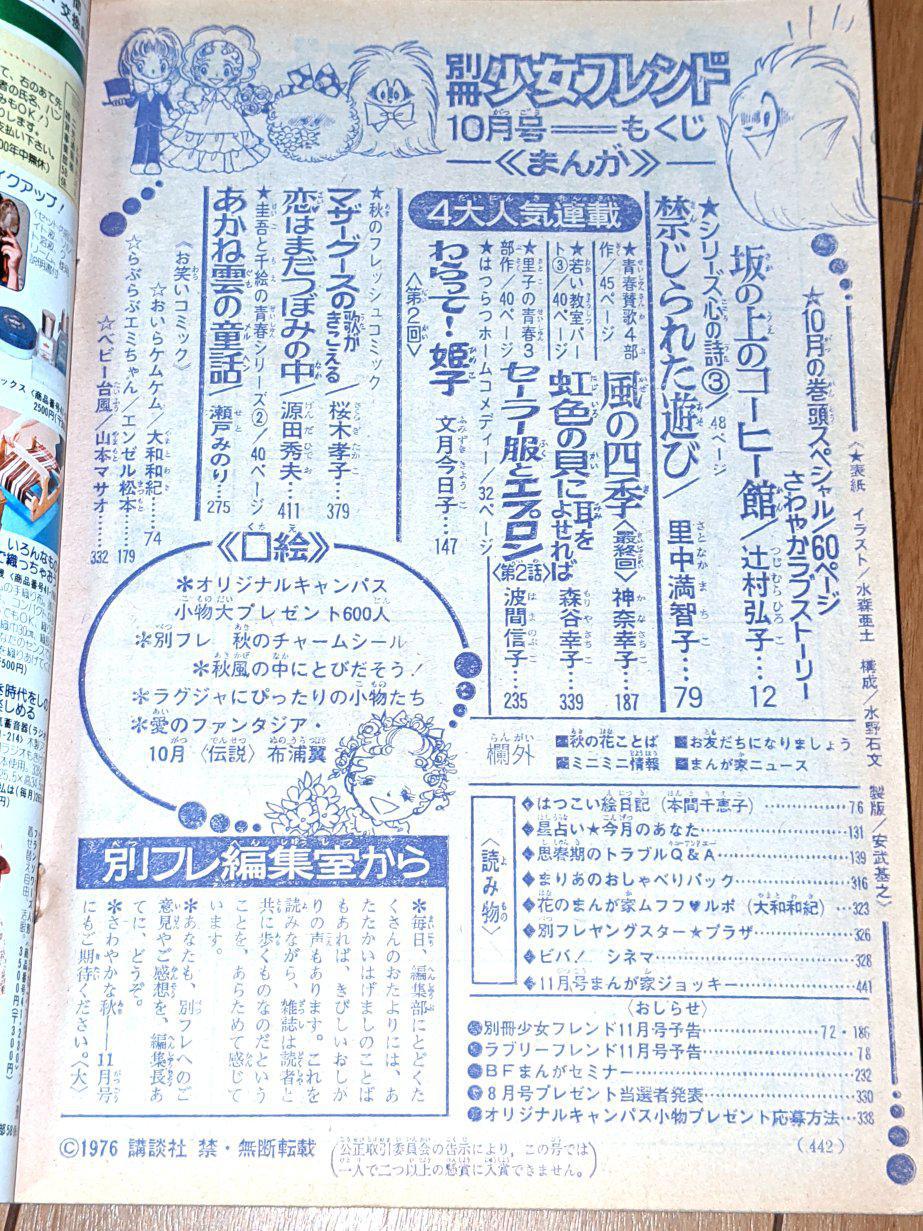 別冊少女フレンド
10月号══もくじ
―《まんが》―
★10月の巻頭スペシャル/60ページ
さわやかラブストーリー
坂の上のコーヒー館/辻村弘子…12
★シリーズ心の詩③/48ページ
禁じられた遊び/里中満智子…79
4大人気連載
★青春賛歌4部作/45ページ
風の四季〈最終回〉神奈幸子…187
★若い教室パート③/40ページ
虹色の貝に耳をよせれば 森谷幸子…339
★里子の青春3部作/40ページ
セーラー服とエプロン〈第2話〉波間信子…235
★はつらつホームコメディー/32ページ
わらって!姫子〈第2回〉文月今日子…147
★秋のフレッシュコミック
マザーグースの歌がきこえる/桜木孝子…379
恋はまだつぼみの中/源田秀夫…411
★圭吾と千絵の青春シリーズ②/40ページ
あかね雲の童話/瀬戸みのり…275
《お笑いコミック》
☆おいらケムケム/大和和紀…74
☆らぶらぶエミちゃん/エンゼル松本…179
☆ベビー台風/山本マサオ…332
《口絵》
＊オリジナルキャンパス
小物大プレゼント600人
＊別フレ 秋のチャームシール
＊秋風の中にとびだそう!
＊ラグジャにぴったりの小物たち
＊愛のファンタジア・
10月〈伝説〉布浦翼
欄外
秋の花ことば
お友だちになりましょう
ミニミニ情報
まんが家ニュース
〈読み物〉
◆はつこい絵日記(本間千恵子)…76
◆星占い★今月のあなた…131
◆思春期のトラブルQ&A…139
◆まりあのおしゃべりパック…316
◆花のまんが家ムフフ♥ルポ(大和和紀)…323
◆別フレヤングスター★プラザ…326
◆ビバ! シネマ…328
◆11月号まんが家ジョッキー…441
〈おしらせ〉
●別冊少女フレンド11月号予告…72・186
●ラブリーフレンド11月号予告…78
●BFまんがセミナー…232
●8月号プレゼント当選者発表…330
●オリジナルキャンパス小物プレゼント応募方法…338
《★表紙 イラスト/水森亜土 構成/水野石文 製版/安武基之》
別フレ編集室から
＊毎日、編集部にとどくた
くさんのおたよりには、あ
たたかいはげましのことば
もあれば、きびしいおしか
りの声もあります。これを
読みながら、雑誌は読者と
共に歩くものなのだという
ことを、あらためて感じて
います。
＊あなたも、別フレへのご
意見やご感想を、編集長あ
てに、どうぞ。
＊さわやかな秋――11月号
にもご期待ください。〈大〉
©1976 講談社 禁・無断転載
(公正取引委員会の告示により、この号では
一人で二つ以上の懸賞に入賞できません。)
(442)